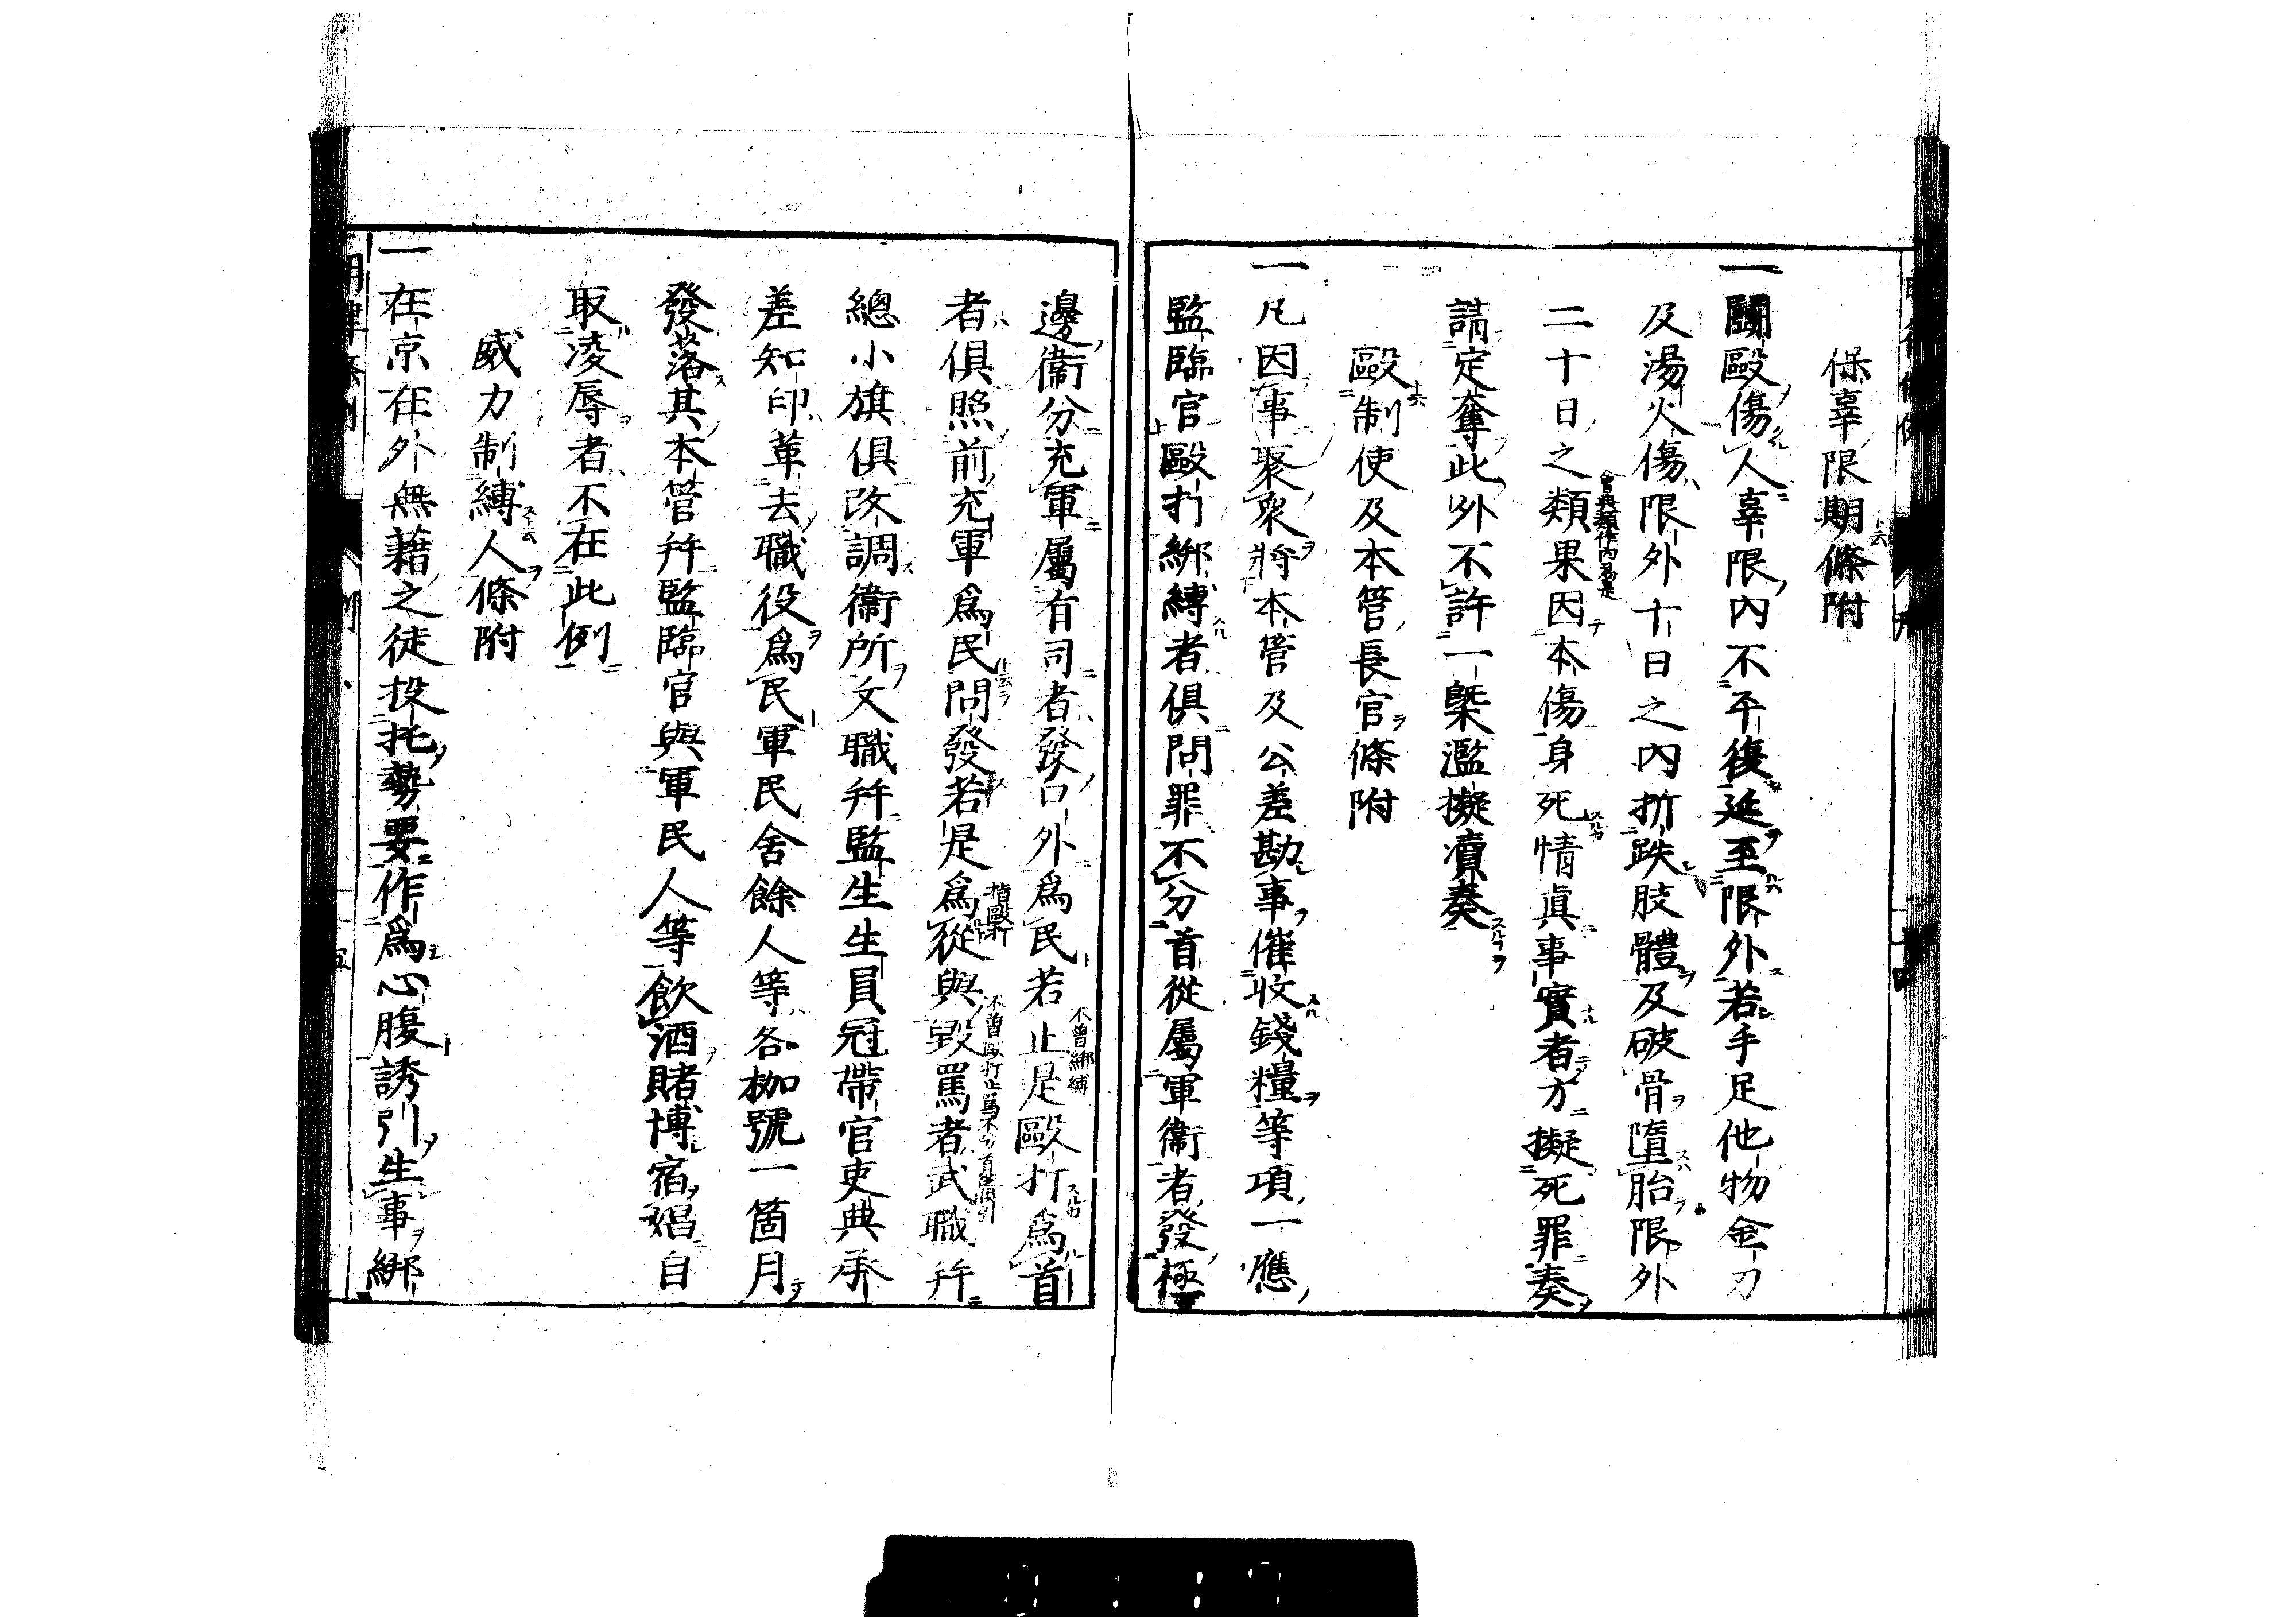 保辜限期條附
一鬪毆傷人辜限內不平復延至限外若手足他物金刃
及湯火傷限外十日之內折跌肢體及破骨墮胎限外
二十日之類果因本傷身死情眞事實者方擬死罪奏
會典類作內爲是
請定奪此外不許一槩濫擬瀆奏
毆制使及本管長官條附
一凡因事聚衆將本管及公差勘事催收錢糧等項一應
監臨官毆打綁縛者俱問罪不分首從屬軍衞者發極
邊衞分充軍屬有司者發口外爲民若止是毆打爲首
不曾綁縛
者俱照前充軍爲民問發若是爲從與毀罵者武職幷
指毆打
不曾毆打止罵不分首從
總小旗俱改調衞所文職幷監生生員冠帶官吏典承
差知印革去職役爲民軍民舍餘人等各枷號一箇月
發落其本管幷監臨官與軍民人等飮酒賭博宿娼自
取凌辱者不在此例
威力制縛人條附
一在京在外無藉之徒投托勢要作爲心腹誘引生事綁